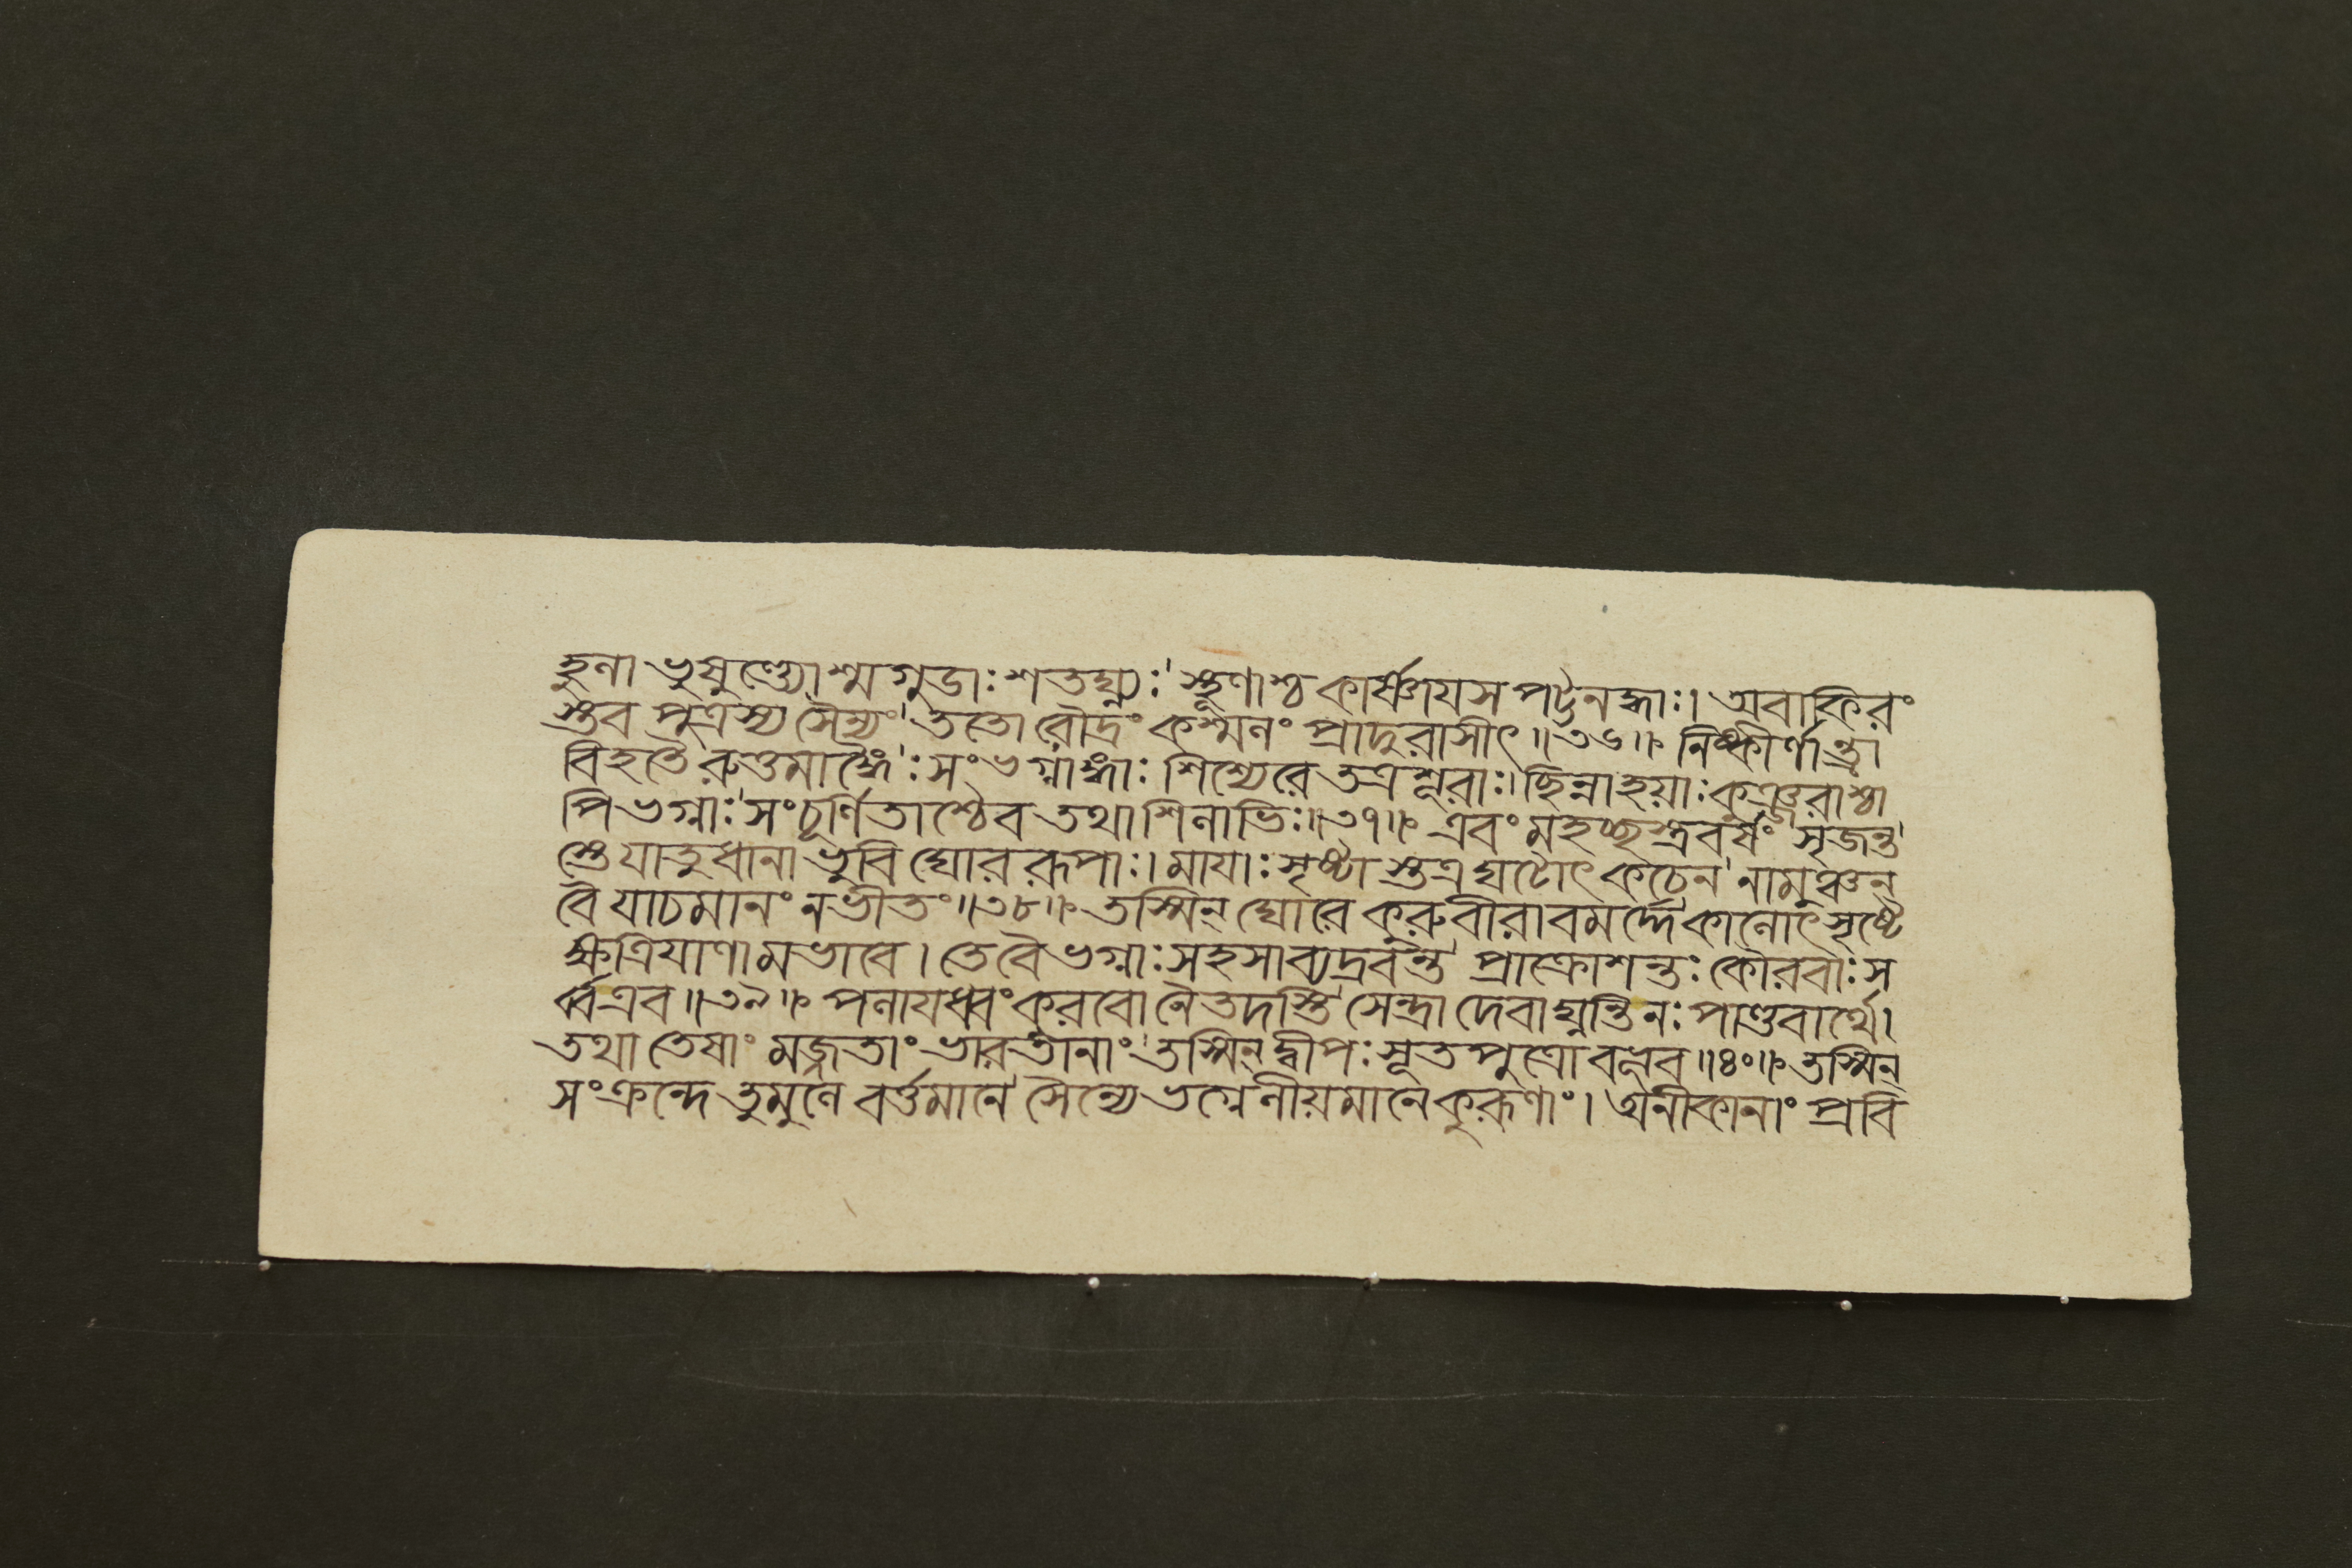 হুলা ভুষুণ্ড্যোশ্মগুডাঃ শতঘ্ন্যঃ স্থূণাশ্চ কার্ষ্ণায়স পট্টনদ্ধাঃ। অবাকিরং
স্তব পুত্রস্য সৈন্যং ততো রৌদ্রং কশ্মলং প্রাদুরাসীৎ॥৩৬॥ নিষ্কীর্ণান্ত্রা
বিহতৈরুত্তমাঙ্গৈঃ সংভগ্নাঙ্গাঃ শিশ্যেরে তত্রশূরাঃ। ছিন্নাহয়াঃ কুঞ্জরাশ্চা
পিভগ্নাঃ সংচূর্ণিতাশ্চৈব তথাশিলাভিঃ॥৩৭॥ এবং মহচ্ছস্ত্রবর্ষং সৃজন্ত
স্তে যাতুধানা ভুবি ঘোররূপাঃ। মাযাঃ সৃষ্টাস্তত্র ঘটোৎকচেন নামুঞ্চন্
বৈ যাচমানং নভীতং॥৩৮॥ তস্মিন্ ঘোরে কুরুবীরাবমর্দ্দে কালোৎসৃষ্টে
ক্ষত্রিযাণামভাবে। তে বৈ ভগ্নাঃ সহসাব্যদ্রবন্ত প্রাক্রোশন্তঃ কৌরবাঃ স
র্ব্বএব॥৩৯॥ পলাযধ্বং কুরবো নৈতদস্তি সেন্দ্রা দেবাঘ্নন্তি নঃ পাণ্ডবার্থে।
তথা তেষাং মজ্জতাং ভারতানাং তস্মিন্ দ্বীপঃ সূতপুত্রো বভূব॥৪০॥ তস্মিন্
সংক্রন্দে তুমুলে বর্ত্তমানে সৈন্যে ভগ্নেলীয়মানে কুরূণাং। অনীকানাং প্রবি